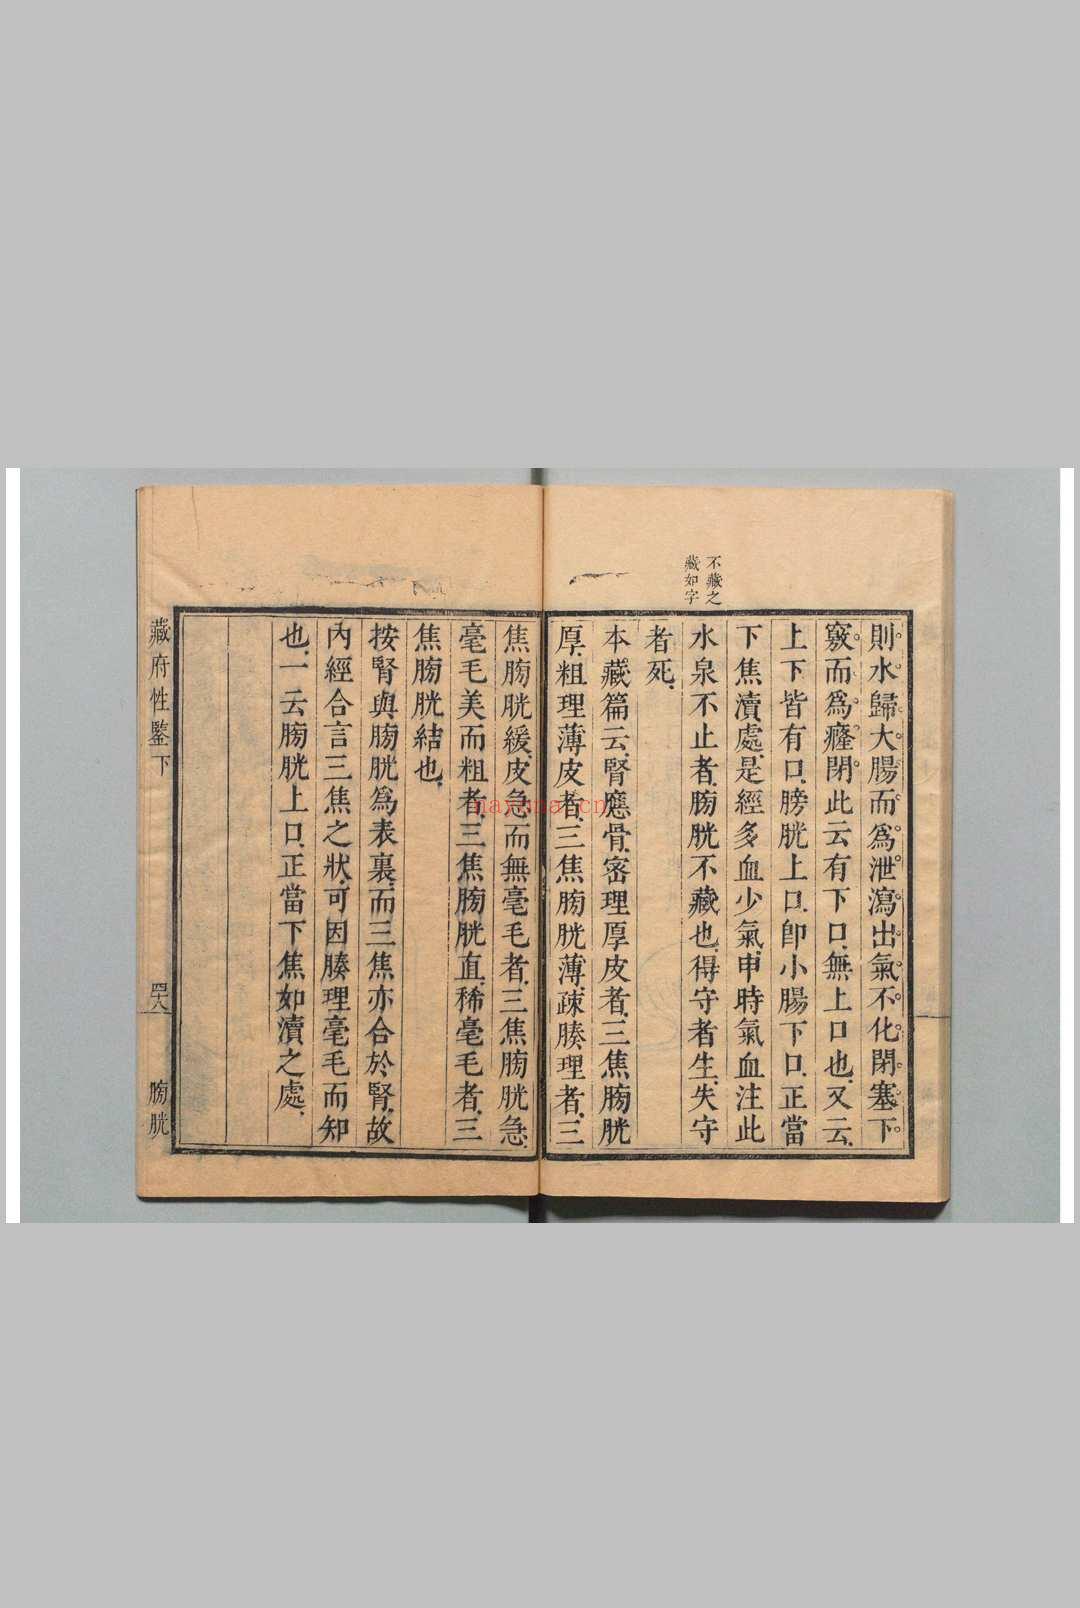 不藏之
藏如字
則水歸大腸而爲泄瀉出氣不化閉塞下
竅而爲癃閉此云有下口、無上口也、又云、
上下皆有口、膀胱上口、卽小腸下口、正當
下焦瀆處、是經多血少氣、申時氣血注此
水泉不止者、膀胱不藏也、得守者生、失守
者死、
本藏篇云、腎應骨、密理厚皮者、三焦膀胱
厚、粗理薄皮者、三焦膀胱薄、疎腠理者、三
焦膀胱緩、皮急而無毫毛者、三焦膀胱急、
毫毛美而粗者、三焦膀胱直、稀毫毛者、三
焦膀胱結也、
按腎與膀胱爲表裏、而三焦亦合於腎、故
內經合言三焦之狀、可因腠理毫毛而知
也、一云膀胱上口、正當下焦如瀆之處、
藏府性鑒下
四八
膀胱
nayona.cn